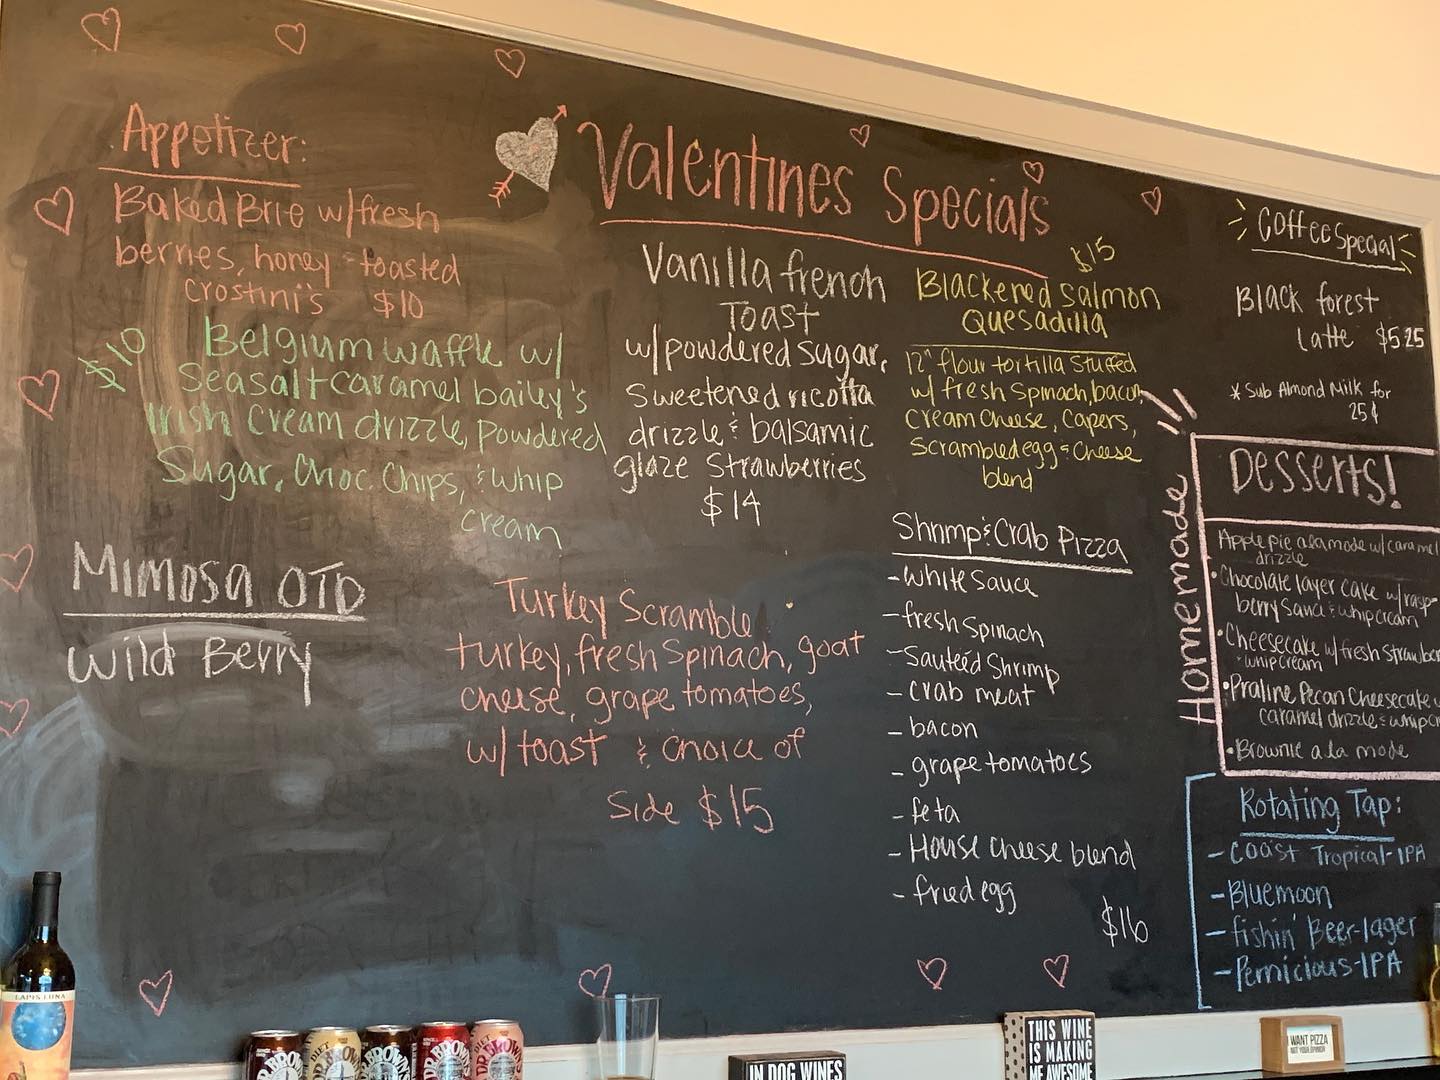 Appetizer:
Baked Brie w/fresh
berries, honey & toasted
crostini's $10
$10
Belgium waffle w/
Seasalt caramel bailey's
Irish Cream drizzle, powdered
Sugar, Choc. Chips, & whip
cream
Mimosa OTD
Wild Berry
Valentines Specials
Vanilla french
Toast
w/powdered sugar,
sweetened ricotta
drizzle & balsamic
glaze Strawberries
$14
Turkey Scramble
turkey, fresh Spinach, goat
cheese, grape tomatoes,
w/toast & choice of
side $15
$15
Blackened salmon
Quesadilla
12" flour tortilla Stuffed
w/ fresh Spinach, bacon,
Cream Cheese, Capers,
Scrambled egg & Cheese
blend
Shrimp & Crab Pizza
- white Sauce
- fresh Spinach
- Sauteéd Shrimp
- crab meat
- bacon
- grape tomatoes
- feta
- House cheese blend
- fried egg
$16
Coffee Special
Black forest
latte $5.25
* Sub Almond Milk for
25¢
Homemade
Desserts!
Apple pie a la mode w/caramel
drizzle
• Chocolate layer cake w/rasp-
berry sauce & whip cream
• Cheesecake w/fresh Strawber
& whip cream
• Praline Pecan Cheesecake w
caramel drizzle & whip cr
• Brownie a la mode
Rotating Tap:
- Coast Tropical-IPA
- Bluemoon
- fishin' Beer-lager
- Pernicious-IPA
LAPIS LUNA
DIET
DR. BROWN'S
DR. BROWN'S
IN DOG WINES
THIS WINE
IS MAKING
ME AWESOME
WANT PIZZA
NOT YOUR OPINION